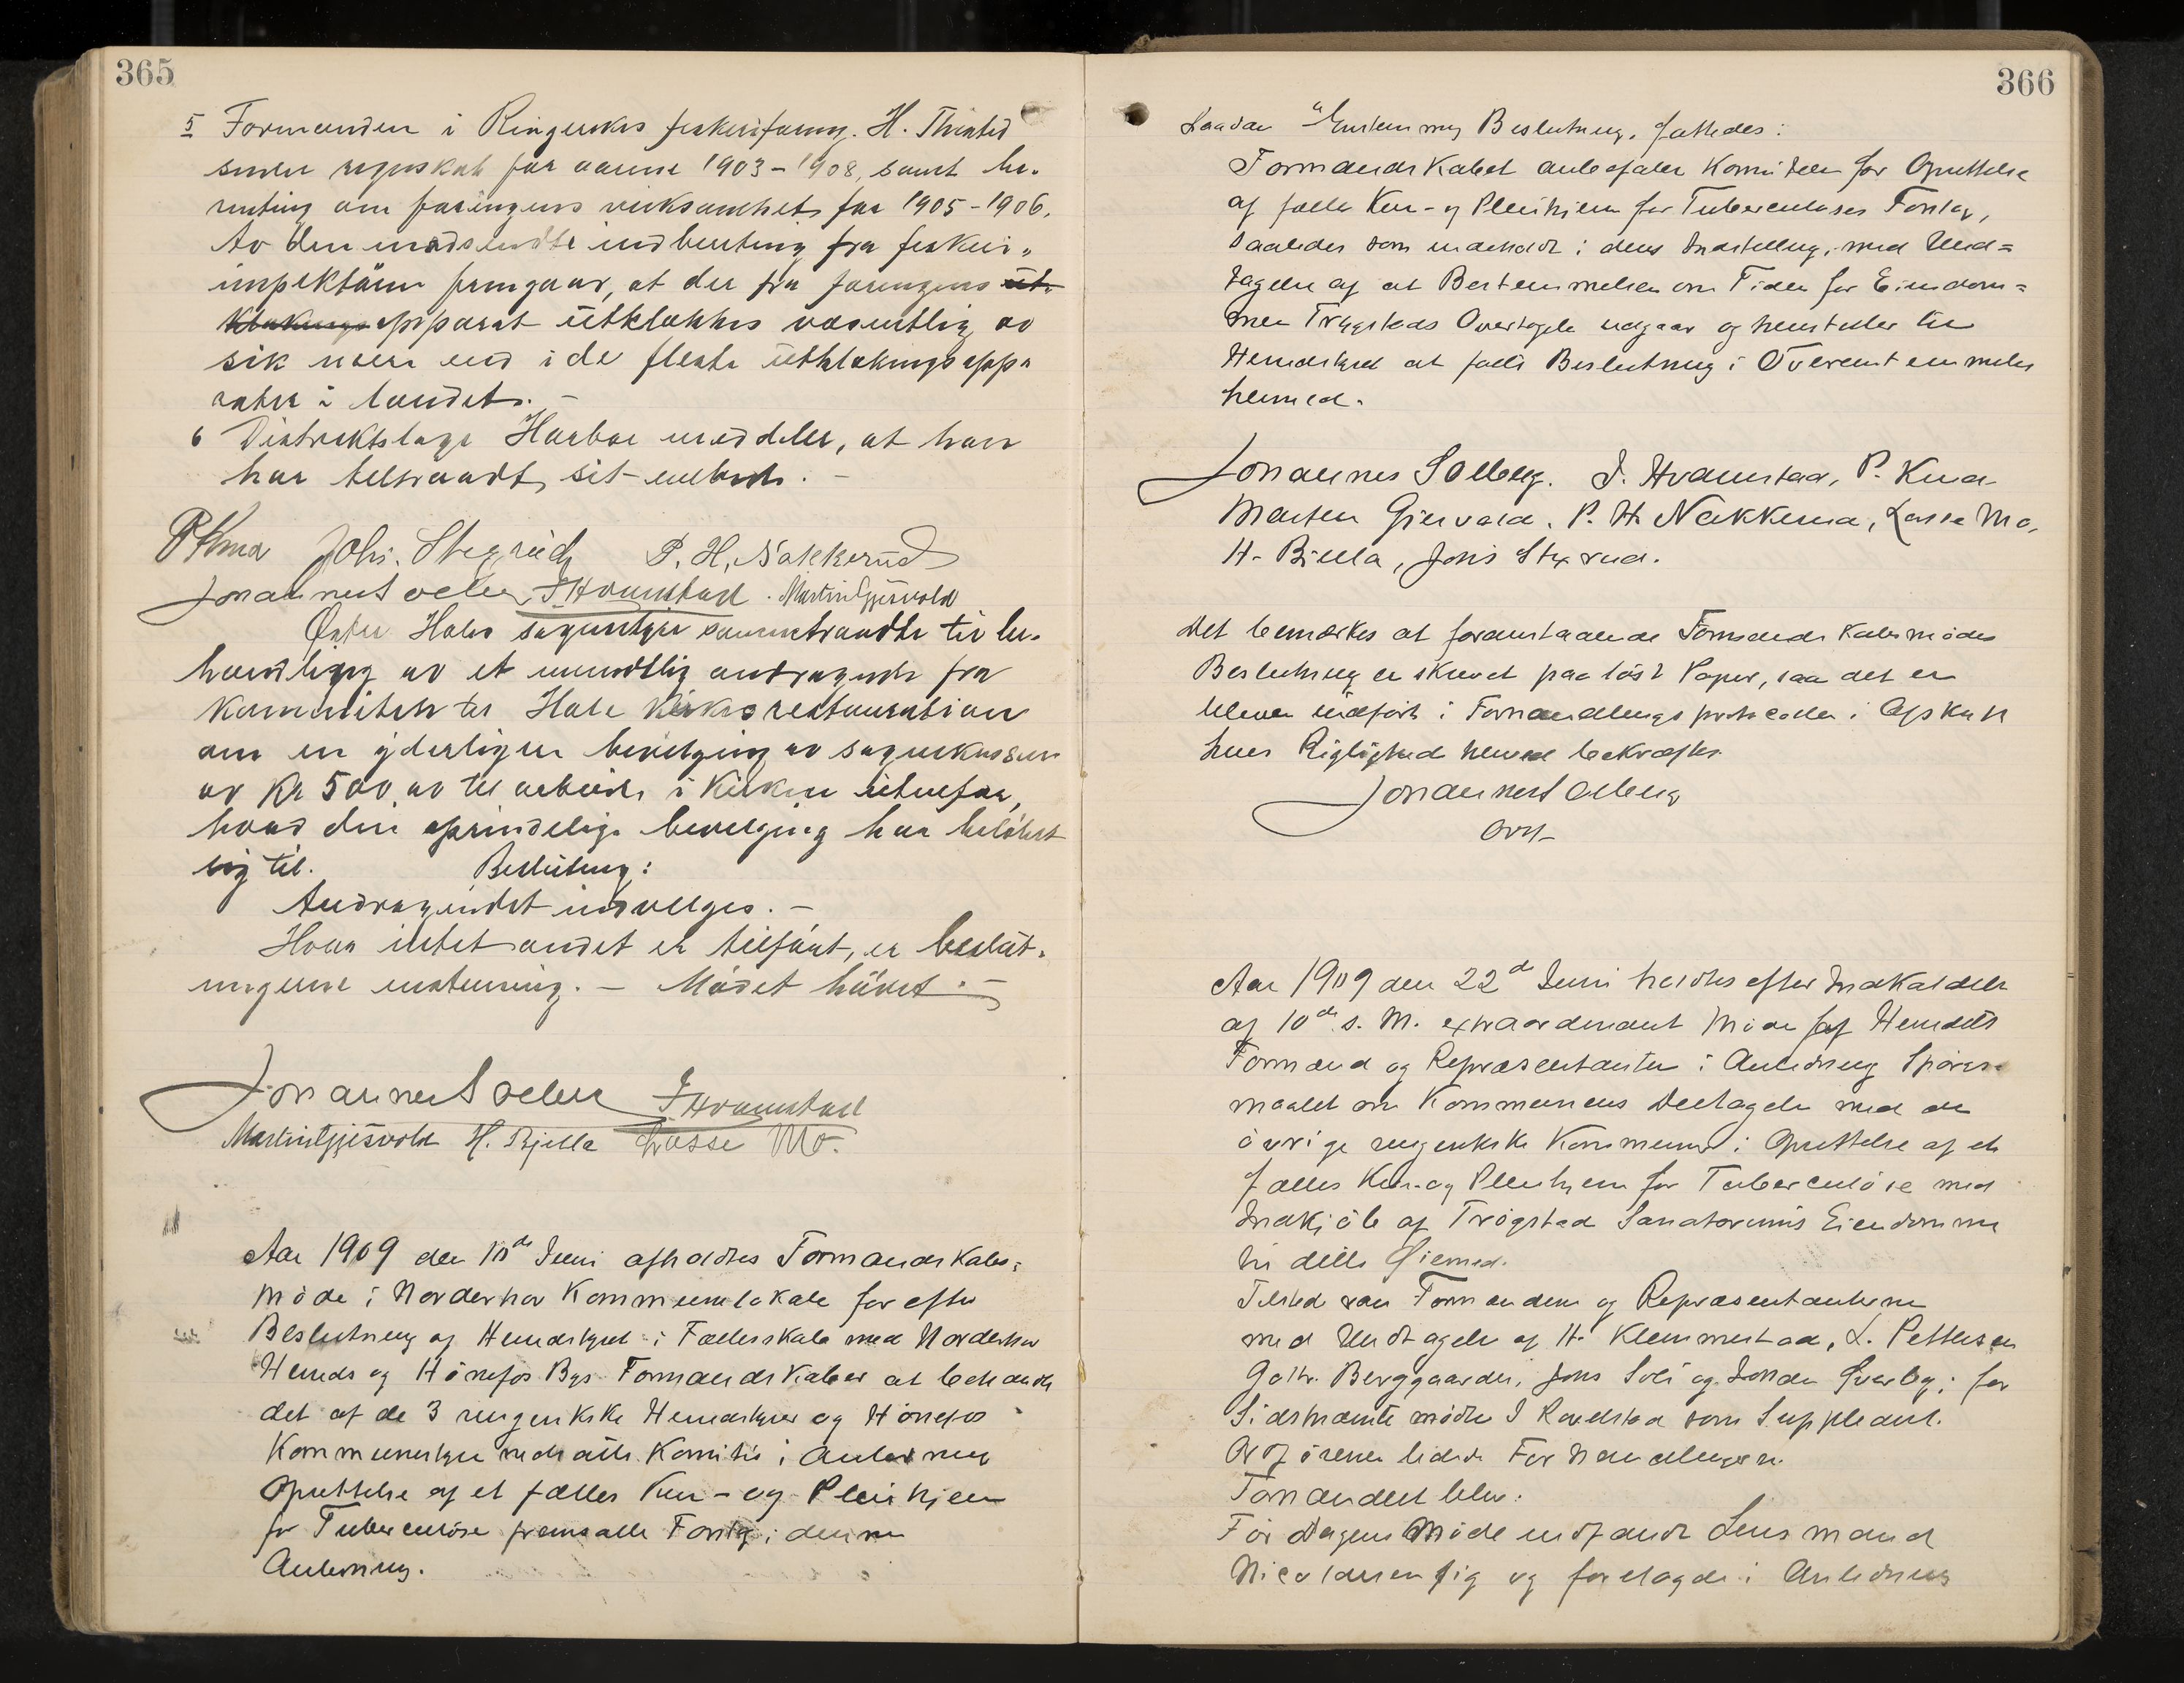 365
5 Formanden i Ringerikes fiskeriforng. H. Thinsted
sender regnskab for aarene 1903-1908, samt be-
retning om foringens virksomhet for 1905-1906.
Av den medsendte indberetning fra fiskeri-
inspektören fremgaar, at der fra foringens ut-
kleknings apparat utklækkes væsentlig av
sik mere end i de fleste utklekningsappa
rater i landet. -
6 Distriktslæge Harboe meddeler, at han
har tiltraadt sit embede. -
P Knud Johs. Stegrud P. H. Nakkerud
Johannes Solberg I Hvamstad. Martin Gjesvold
Dater Holes sogneselskap sammentraadte til be-
handling av et mundtlig andragende fra
komiteen for Hole kirkes restauration
om en yderligere bevilgning av sognekassen
av Kr 500,00 til arbeide i kirken utenfor,
hvad den oprindelige bevilgning har belöbet
sig til. Beslutning:
Andragendet indvilges. -
Hvor intet andet er tilfört, er beslut-
ningerne enstemmig. - Mödet hævet. -
Johannes Solberg I Hvamstad
Martin Gjesvold H. Bjella Lasse Mo.
Aar 1909 den 10de Juni afholdtes Formandskabs=
möde i Norderhov Kommunelokale for efter
Beslutning af Herredstyret i Fællesskab med Norderhov
Herreds og Hönefos Bys Formandskaber at behandle
det af de 3 ringerikske Herredstyrer og Hönefos
Kommunestyre nedsatte Komites i Anledning
Oprettelse af et fælles Kur- og Pleiehjem
for Tuberculöse fremsatte Forslag i denne
Anledning.
366
Saadan Enstemmig Beslutning, fattedes:
Formandskabet anbefaler Komiteen for Oprettelse
af fælles Kur- og Pleiehjem for Tuberculöses Forslag,
saaledes som indeholdt i dens Indstilling, med Und=
tagelse af at Bestemmelsen om Tiden for Eiendom=
men Trögstads Overtagelse udgaar og henstiller til
Herredstyret at fatte Beslutning i Overenstemmelse
hermed.
Johannes Solberg. I. Hvamstad, P. Knud
Marten Gjesvold. P. H. Nakkerud, Lasse Mo,
H. Bjella, Johs Stegrud.
Det bemærkes at foranstaaende Formandskabsmödes
Beslutning er skrevet paa löst Papir, saa det er
bleven indfört i Forhandlingsprotocollen i Afskrift
hvis Rigtighed herved bekræftes.
Johannes Solberg
Ordf
Aar 1909 den 22de Juni holdtes efter Indkaldelse
af 10de s. M. extraordinært Möde af Herredets
Formænd og Repræsentanter i Anledning Spörgs-
maalet om Kommunens Deltagelse med de
övrige ringerikske Kommuner i Oprettelse af et
fælles Kur- og Pleiehjem for Tuberculöse med
Indkjöb af Trögstad Sanatoriums Eiendomme
til dette Öiemed.
Tilstede var Formændene og Repræsentanterne
med Undtagelse af H. Klemmestad, L. Pettersen
Guthr. Berggaarden, Johs Soli og Sverby; for
Sidstnævnte mödte I Rudstad som Suppleant.
Ordföreren ledede Forhandlingerne.
Foretaget blev:
För Dagens Möde indfandt Lensmand
Nicolaisen sig og foretagde i Anledning